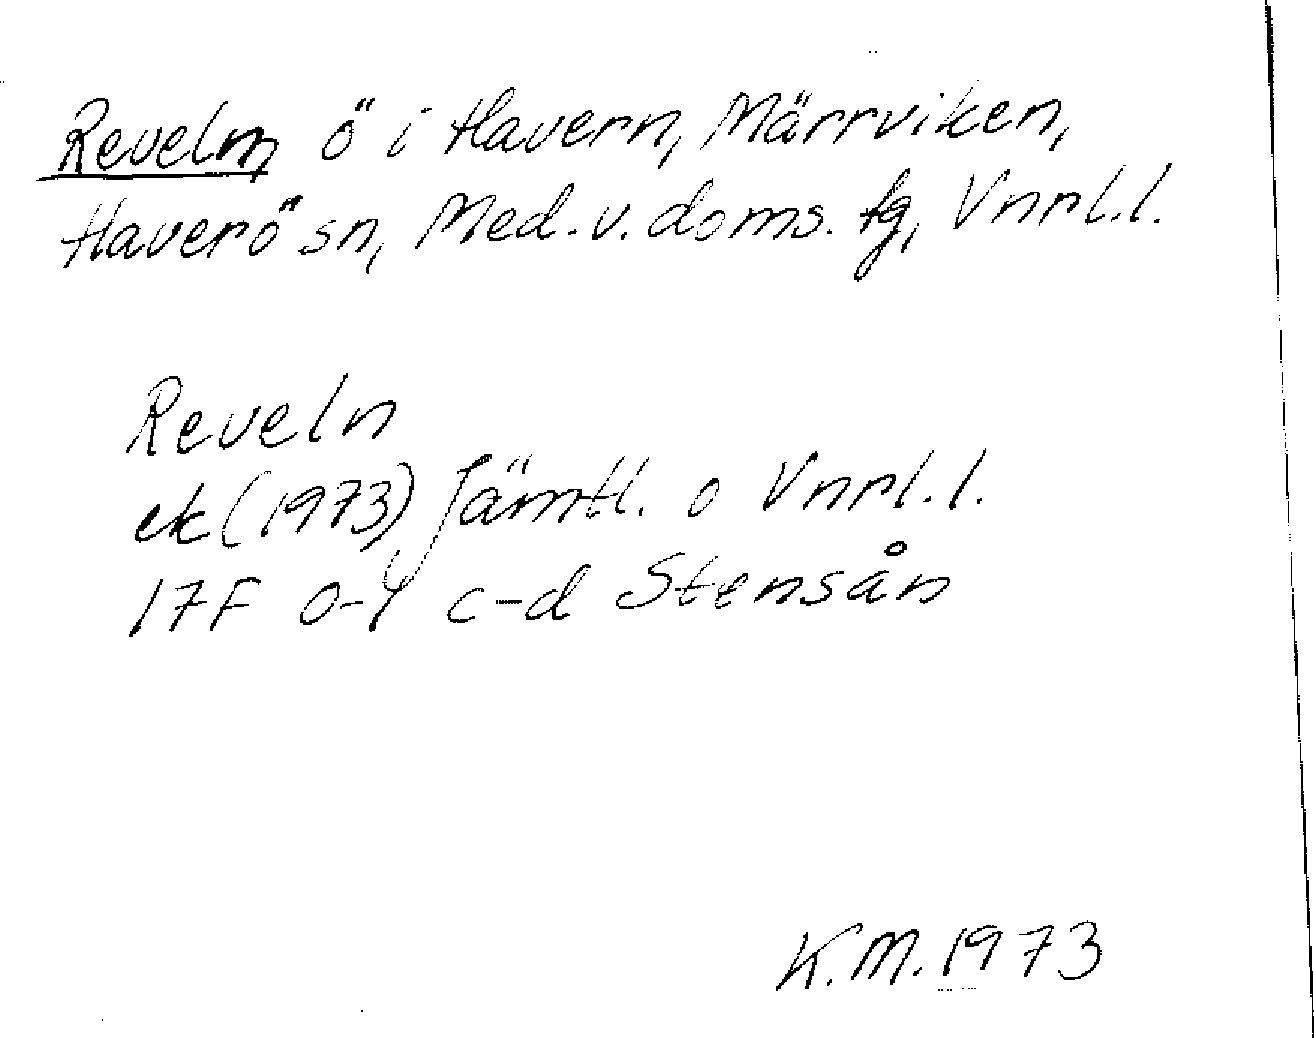 Reveln, ö i Havern, Märrviken,
Haverö sn, Med. v. doms. tg, Vnrl.l.
Reveln
ek (1973) Jämtl. o Vnrl.l.
17F 0-4 c-d Stensån
K.M. 1973